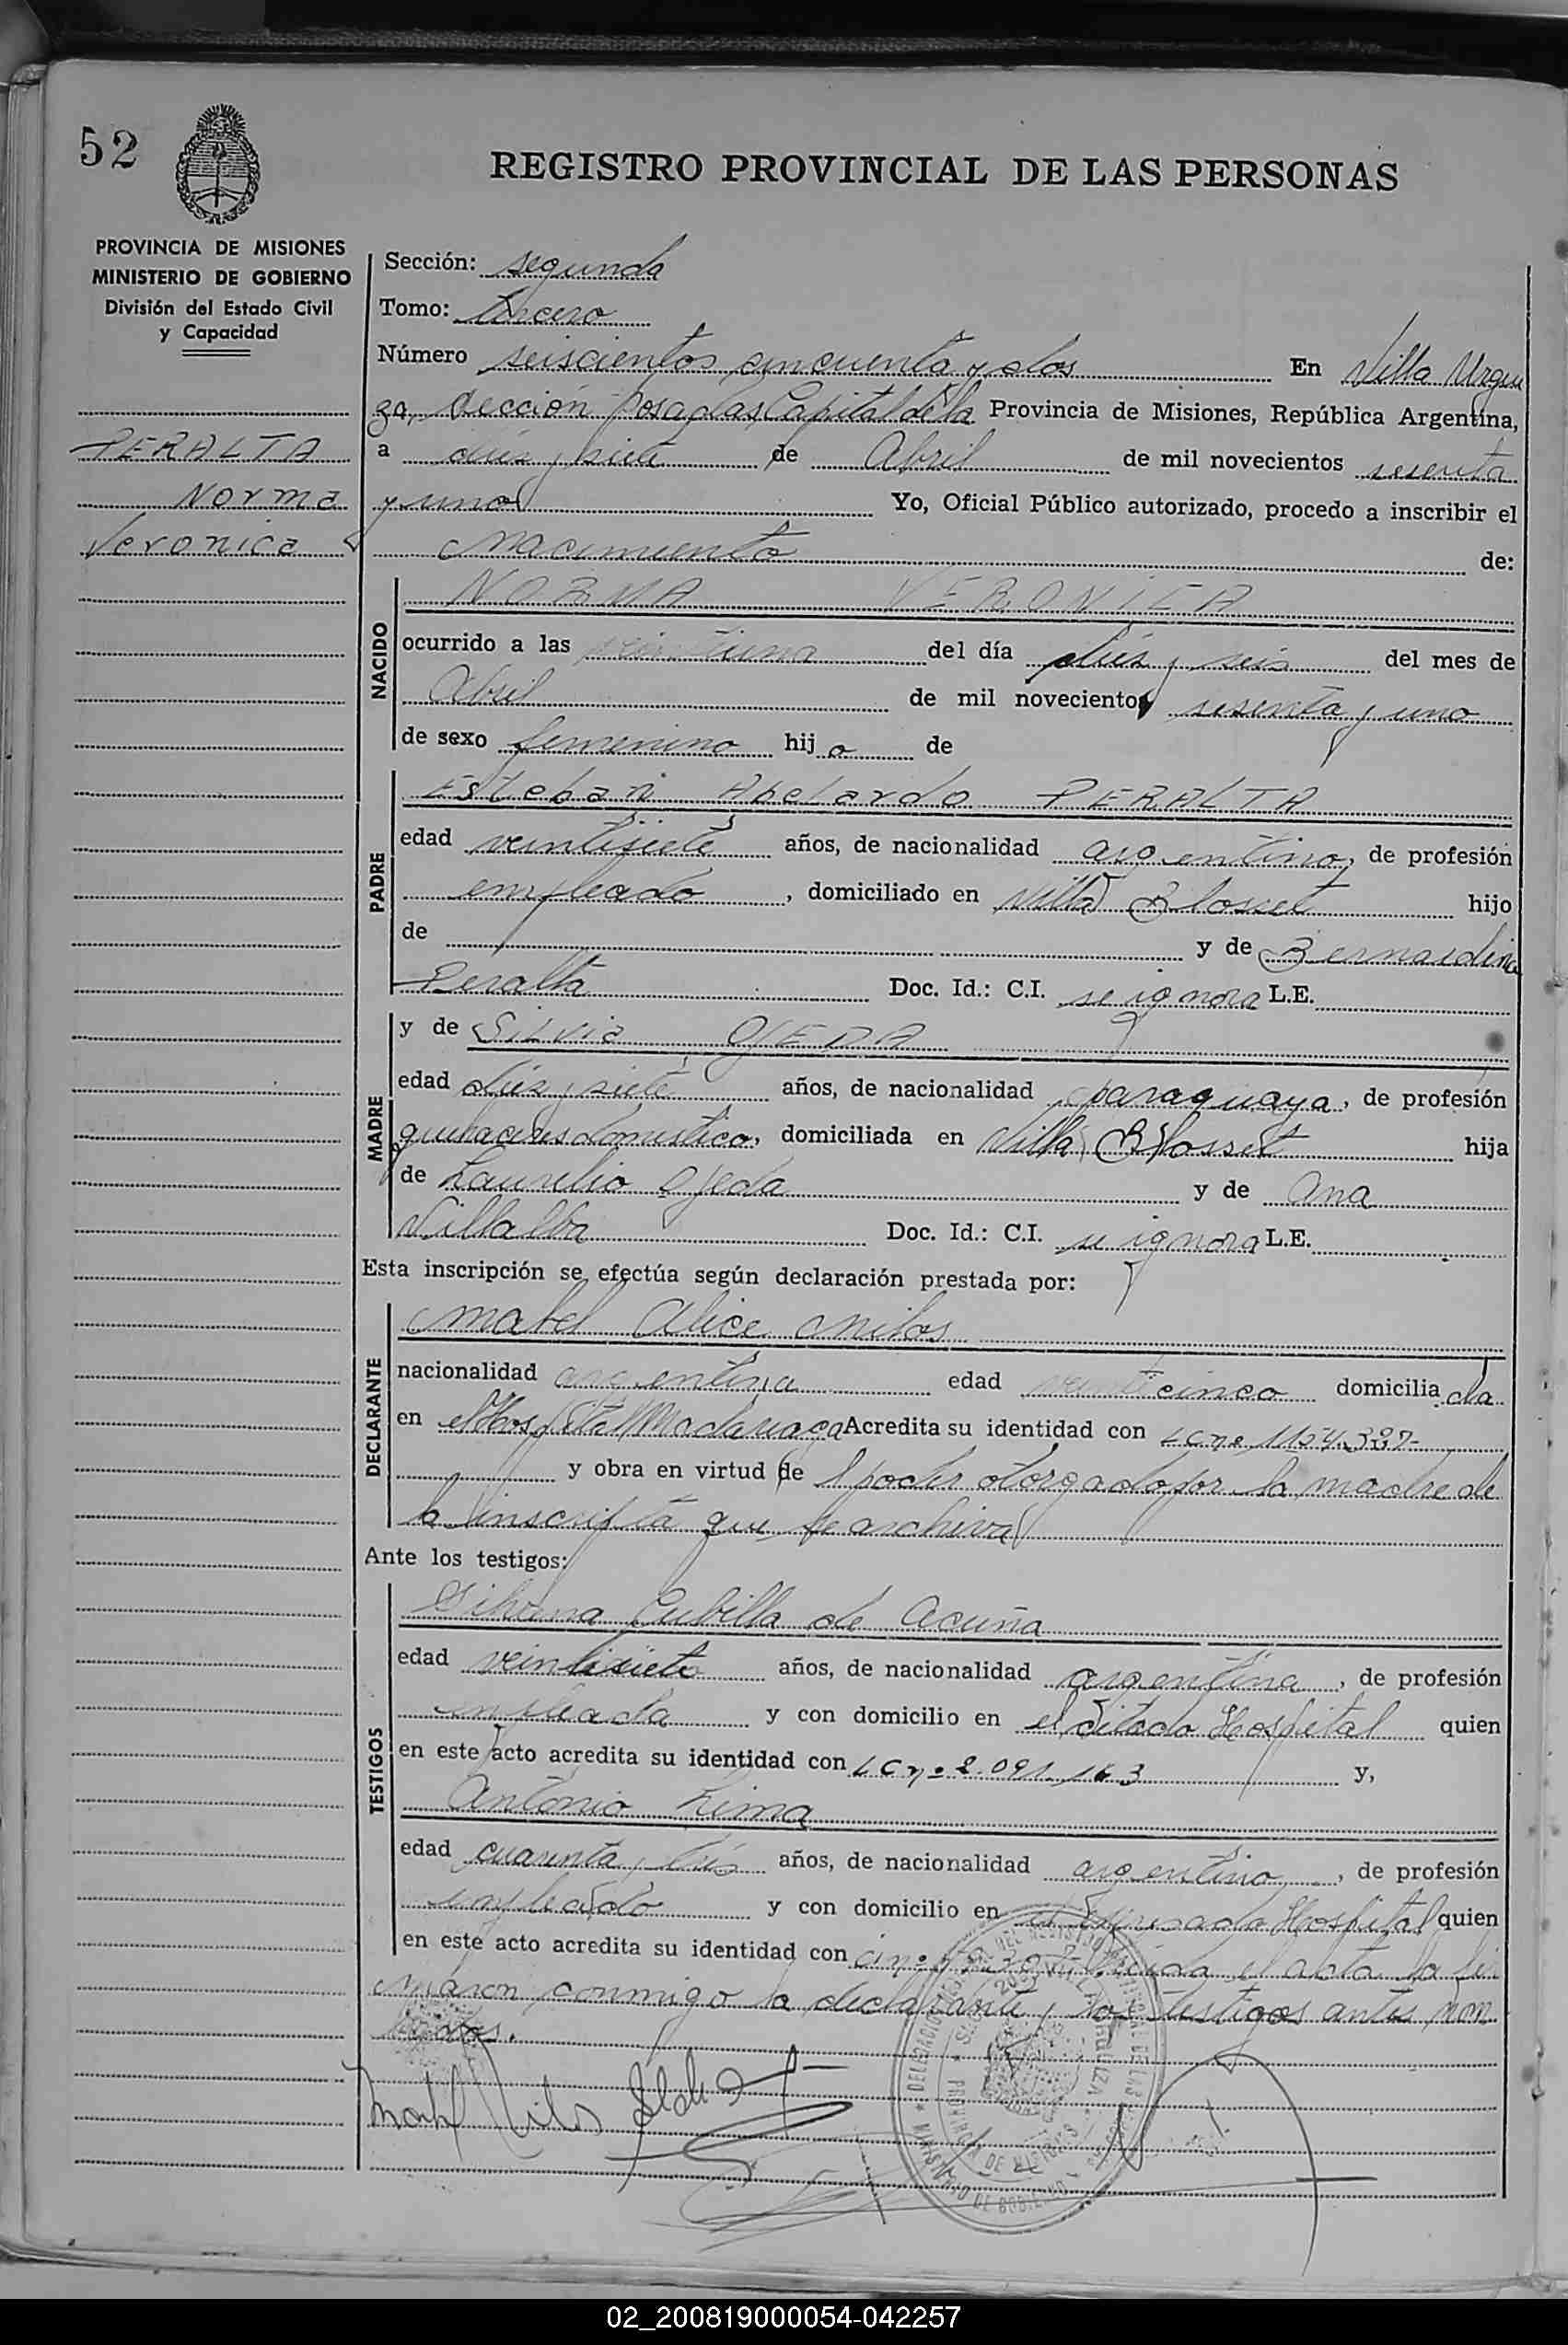 52
REGISTRO PROVINCIAL DE LAS PERSONAS
PROVINCIA DE MISIONES
MINISTERIO DE GOBIERNO
División del Estado Civil
y Capacidad
PERALTA
Norma
Veronica
Sección: segunda
Tomo: tercero
Número seiscientos cincuenta y dos En Villa Urqui
za, Sección Posadas, Capital de la Provincia de Misiones, República Argentina,
a diez y siete de Abril de mil novecientos sesenta
y uno Yo, Oficial Público autorizado, procedo a inscribir el
nacimiento de:
NACIDO
NORMA VERONICA
ocurrido a las veintiuna del día diez y seis del mes de
Abril de mil novecientos sesenta y uno
de sexo femenino hij a de
PADRE
Esteban Abelardo PERALTA
edad veintisiete años, de nacionalidad argentino, de profesión
empleado, domiciliado en Villa Blosset hijo
de y de Bernardina
Peralta Doc. Id.: C.I. se ignora L.E.
MADRE
y de Silvia OJEDA
edad diez y siete años, de nacionalidad paraguaya, de profesión
quehaceres domestico, domiciliada en Villa Blosset hija
de Laurelio Ojeda y de Ana
Villalba Doc. Id.: C.I. se ignora L.E.
Esta inscripción se efectúa según declaración prestada por:
DECLARANTE
Mabel Alice Milos
nacionalidad argentina edad veinticinco domicilia da
en el Hospital Madariaga Acredita su identidad con LC nº
y obra en virtud de l poder otorgado por la madre de
la inscripta que se archiva
Ante los testigos:
TESTIGOS
Cubilla de Acuña
edad veintisiete años, de nacionalidad argentina, de profesión
empleada y con domicilio en el citado Hospital quien
en este acto acredita su identidad con LC nº 2.091.163 y,
Antonio Lima
edad cuarenta y tres años, de nacionalidad argentino, de profesión
empleado y con domicilio en el expresado Hospital quien
en este acto acredita su identidad con el acta la fir
maron conmigo la declarante y los testigos antes nom
brados.
02_200819000054-042257